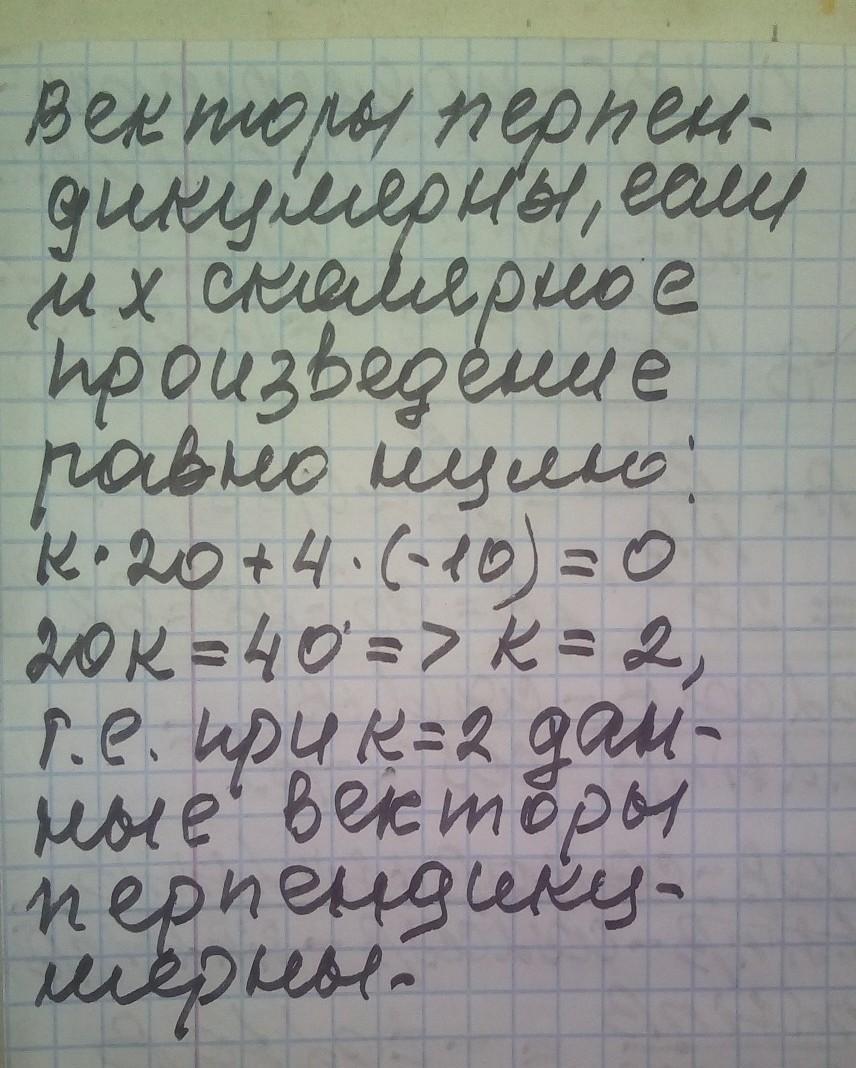 Векторы перпен-
дикулярны, если
их скалярное
произведение
равно нулю:
к·20+4·(-10)=0
20к=40=> к=2,
т.е. при к=2 дан-
ные векторы
перпендику-
лярны.